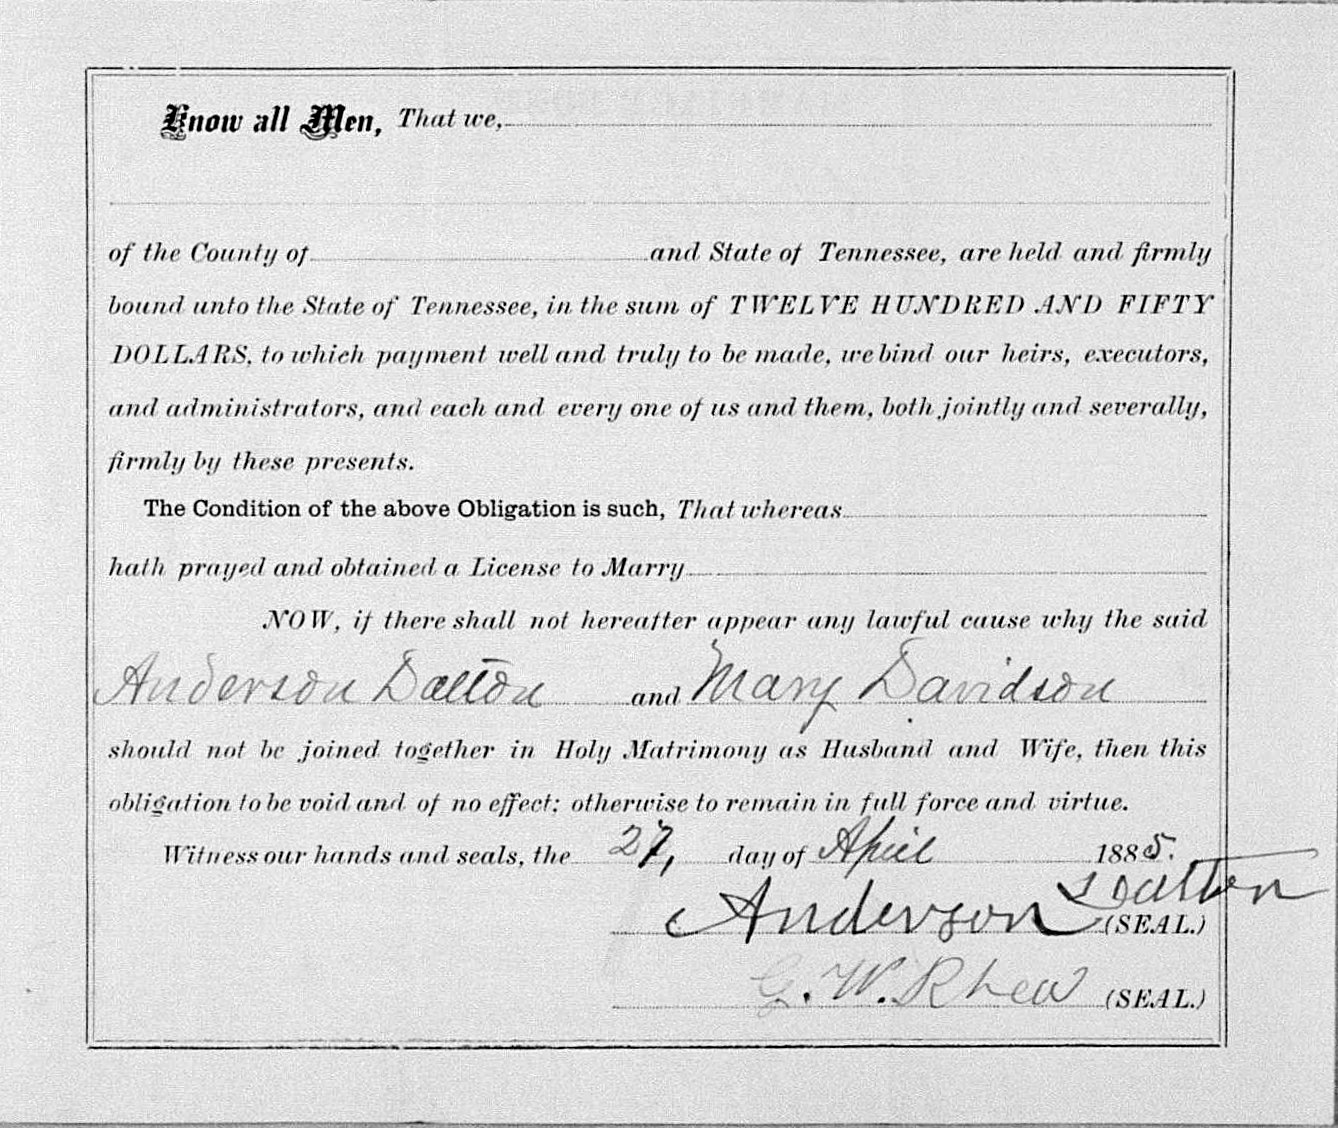 Know all Men, That we,
of the County of and State of Tennessee, are held and firmly
bound unto the State of Tennessee, in the sum of TWELVE HUNDRED AND FIFTY
DOLLARS, to which payment well and truly to be made, we bind our heirs, executors,
and administrators, and each and every one of us and them, both jointly and severally,
firmly by these presents.
The Condition of the above Obligation is such, That whereas
hath prayed and obtained a License to Marry
NOW, if there shall not hereafter appear any lawful cause why the said
Anderson Dalton and Mary Davidson
should not be joined together in Holy Matrimony as Husband and Wife, then this
obligation to be void and of no effect; otherwise to remain in full force and virtue.
Witness our hands and seals, the 27, day of April 1885.
Anderson Dalton (SEAL.)
G. W. Rhew (SEAL.)